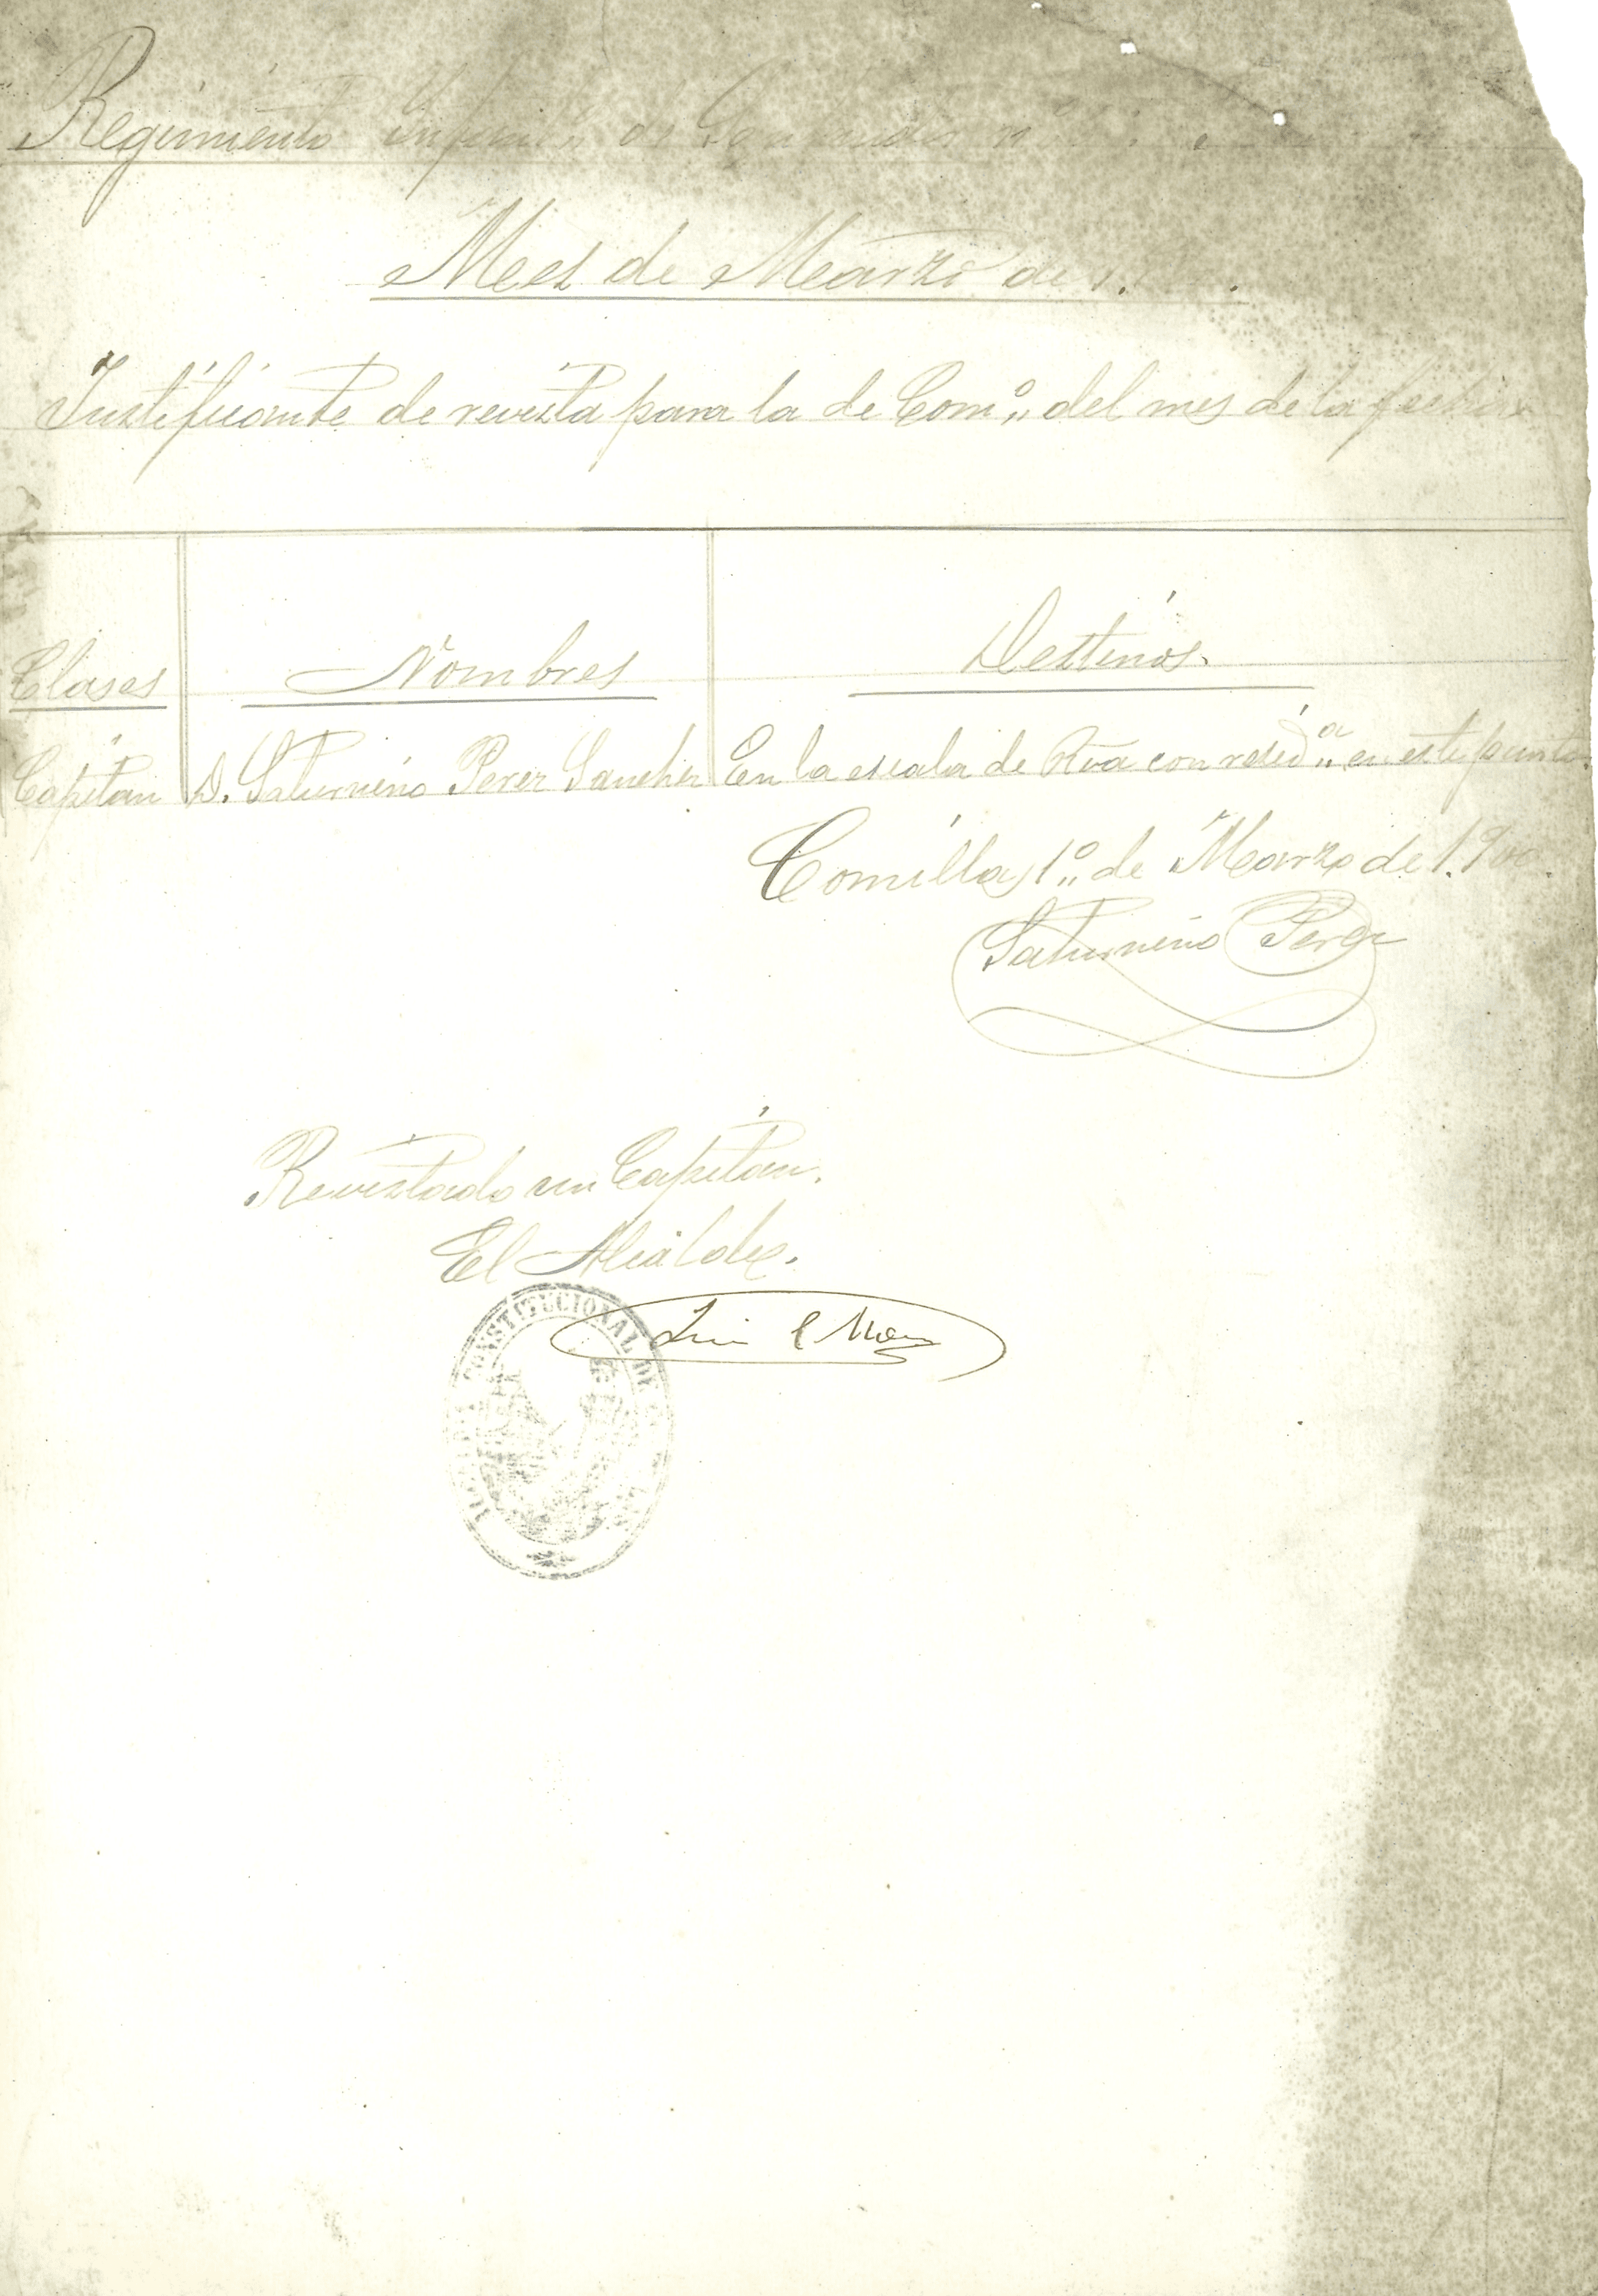 Regimiento Infantª de nº
Mes de Marzo de 1.
Justificante de revista para la de Comº del mes de la fecha
Clases Nombres Destinos.
Capitan D. Saturnino Perez Sanchez En la escala de Rva con residª en este punto.
Comillas 1º de Marzo de 1.900.
Saturnino Perez
Revistado un Capitan.
El Alcalde.
CONSTITUCIONAL DE